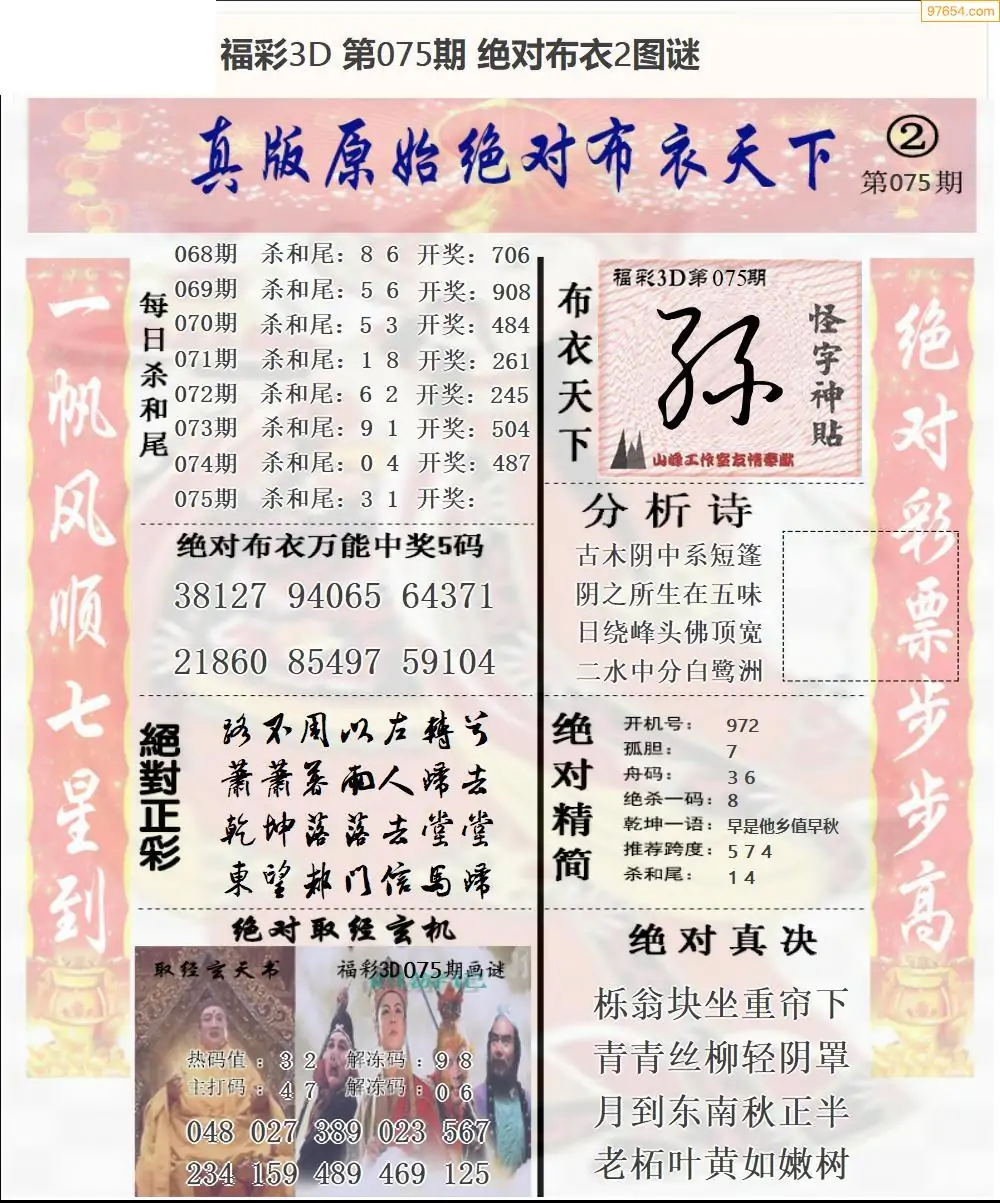 97654.com
福彩3D 第075期 绝对布衣2图谜
真版原始绝对布衣天下
②
第075期
一帆风顺七星到
每日杀和尾
068期 杀和尾：8 6 开奖：706
069期 杀和尾：5 6 开奖：908
070期 杀和尾：5 3 开奖：484
071期 杀和尾：1 8 开奖：261
072期 杀和尾：6 2 开奖：245
073期 杀和尾：9 1 开奖：504
074期 杀和尾：0 4 开奖：487
075期 杀和尾：3 1 开奖：
绝对布衣万能中奖5码
38127 94065 64371
21860 85497 59104
絕對正彩
路不周以左轉兮
蕭蕭暮雨人歸去
乾坤落落去堂堂
東望都门信馬歸
绝对取经玄机
取经玄天书
福彩3D075期画谜
热码值：3 2 解冻码：9 8
主打码：4 7 解冻码：0 6
048 027 389 023 567
234 159 489 469 125
布衣天下
福彩3D第075期
怪字神貼
山峰工作室友情奉献
分析诗
古木阴中系短篷
阴之所生在五味
日绕峰头佛顶宽
二水中分白鹭洲
绝对精简
开机号：972
孤胆：7
舟码：3 6
绝杀一码：8
乾坤一语：早是他乡值早秋
推荐跨度：5 7 4
杀和尾：1 4
绝对真决
栎翁块坐重帘下
青青丝柳轻阴罩
月到东南秋正半
老柘叶黄如嫩树
绝对彩票步步高